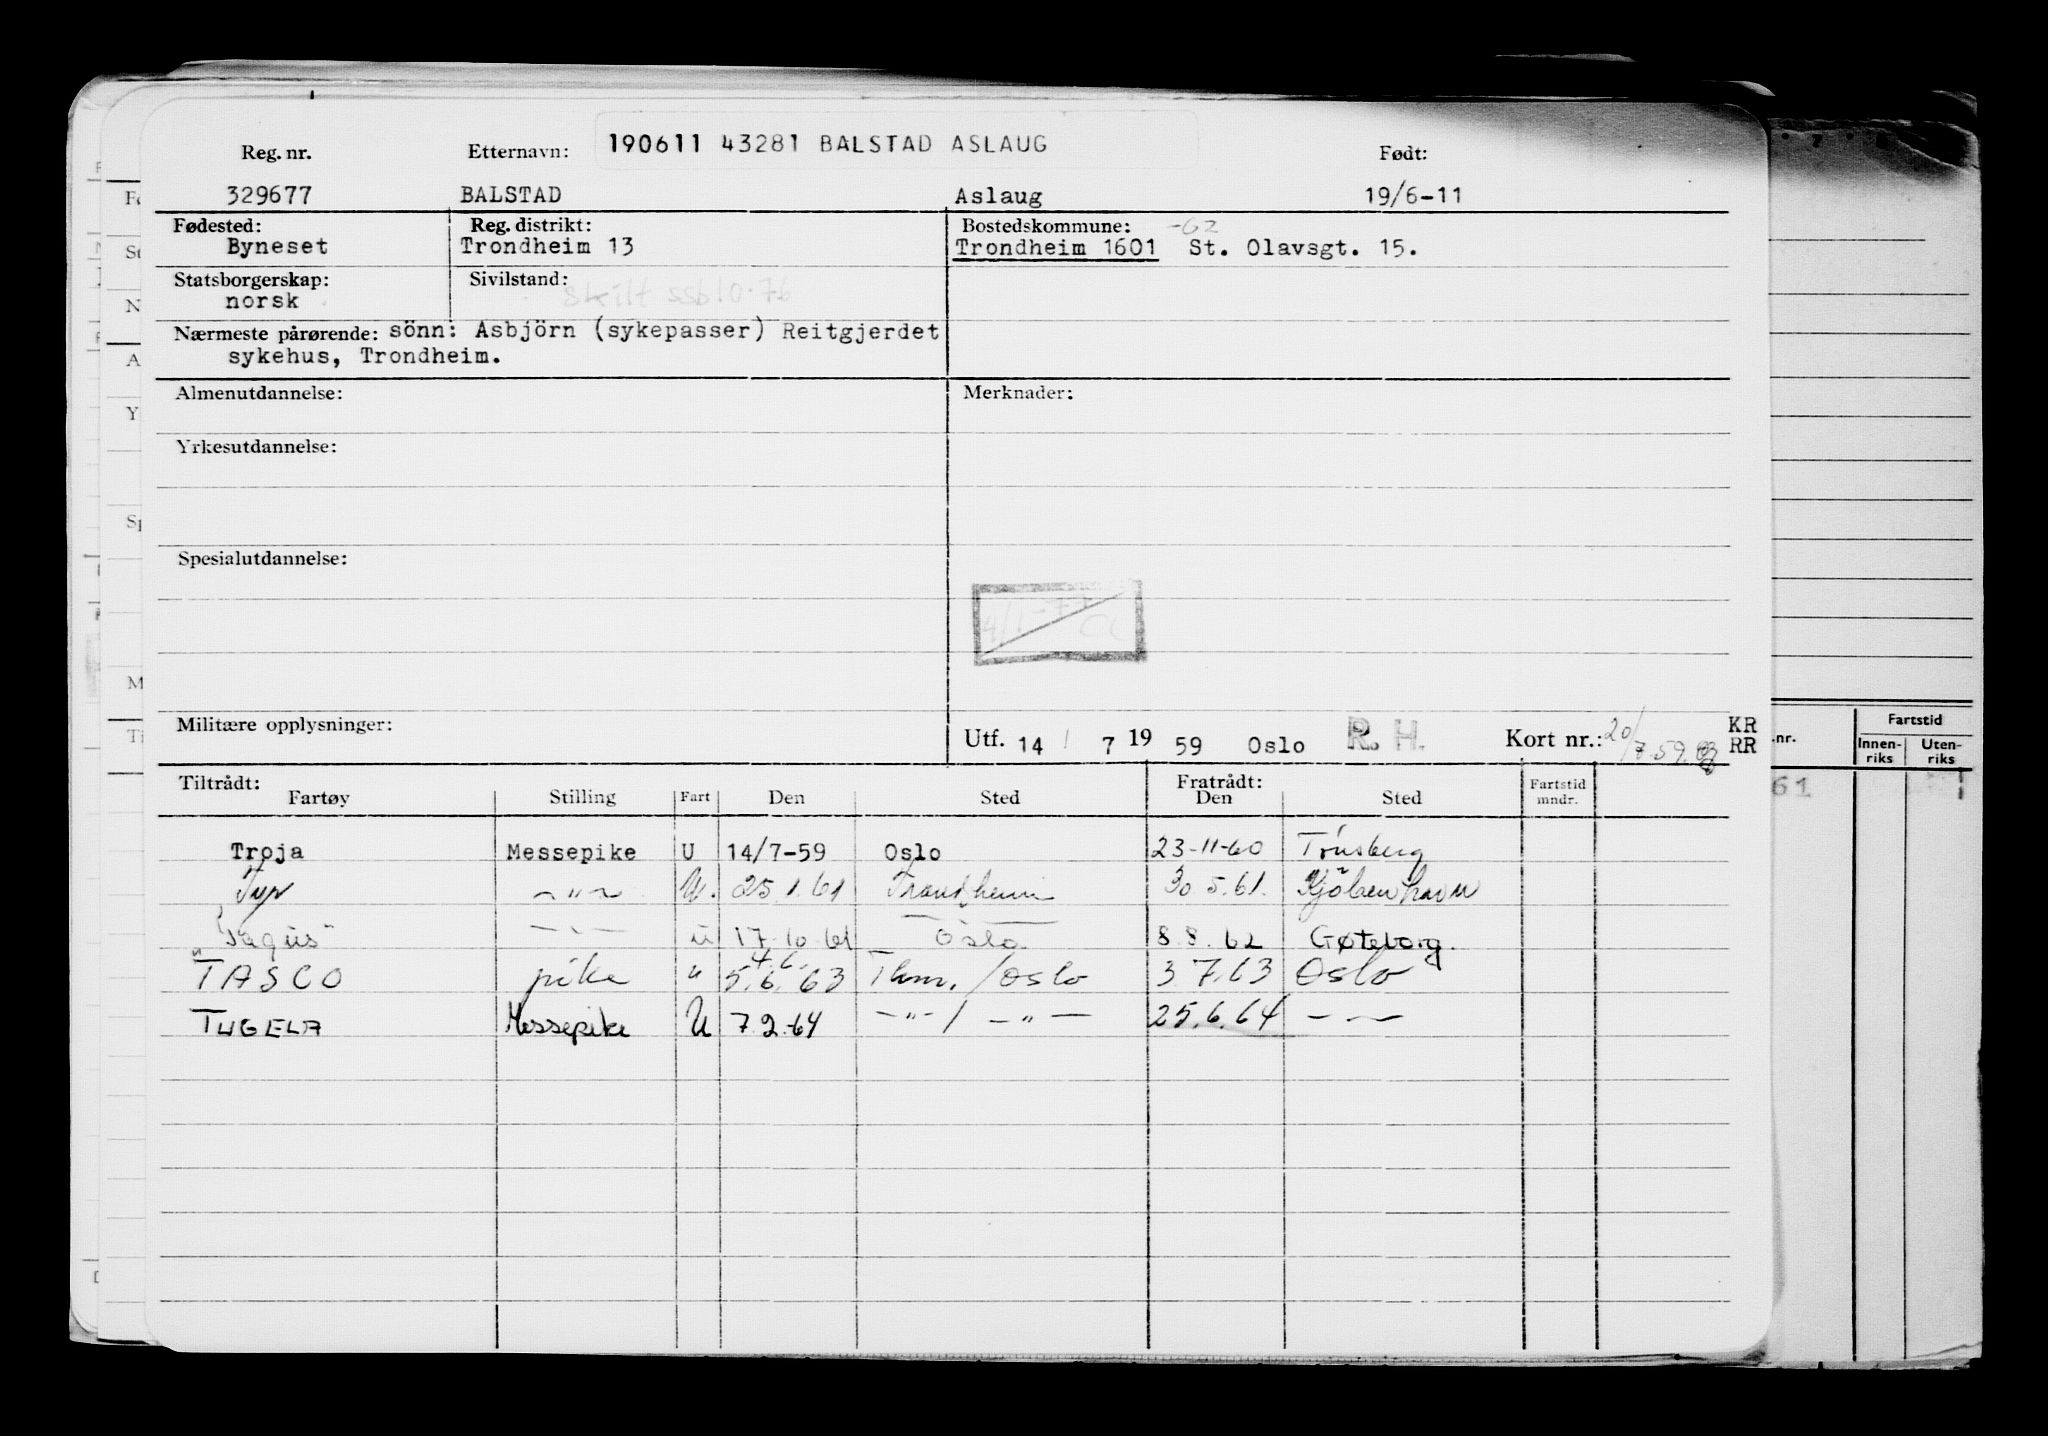 190611 43281 BALSTAD ASLAUG
Reg. nr. Etternavn: Født:
329677 BALSTAD Aslaug 19/6-11
Fødested: Reg. distrikt: Bostedskommune: -62
Byneset Trondheim 13 Trondheim 1601 St. Olavsgt. 15.
Statsborgerskap: Sivilstand:
norsk Skilt ssb 10.76
Nærmeste pårørende: sönn: Asbjörn (sykepasser) Reitgjerdet
sykehus, Trondheim.
Almenutdannelse: Merknader:
Yrkesutdannelse:
Spesialutdannelse:
Militære opplysninger: Utf. 14 / 7 19 59 Oslo R. H. Kort nr.: 20/7.59. KR
RR
Tiltrådt: Fratrådt:
Fartøy Stilling Fart Den Sted Den Sted Fartstid mndr.
Troja Messepike U 14/7-59 Oslo 23-11-60 Tönsberg
Tyr -"- U. 25.1.61 Trondheim 30.5.61. Kjöbenhavn
"Tagus" -"- u 17.10.61 Oslo 8.8.62 Gøteborg.
4.6.
TASCO pike " 5.6.63 Thm./Oslo 3.7.63 Oslo
TUGELA Messepike U 7.2.64 -"-/-"- 25.6.64 -"-
.nr. Fartstid
Innen-riks Uten-riks
61